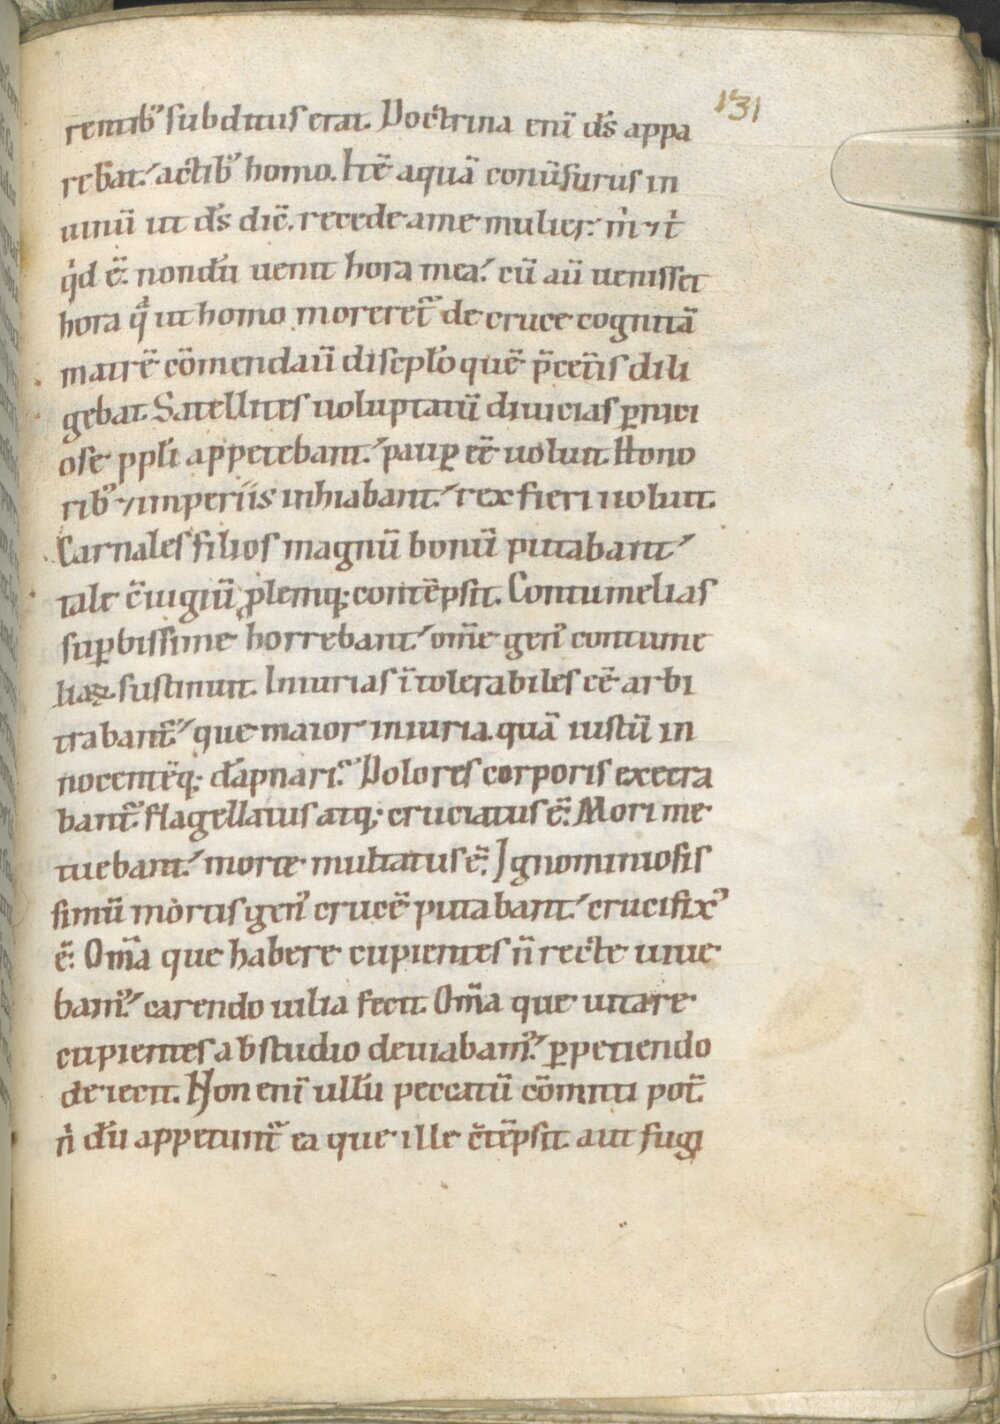 131
rentib᾽ subditus erat. Doctrina eni᷃ d̅s appa
reb̅at.᾽ actib᾽ homo. Ite̅ aqua̅ conu̅surus in
uinu̅ ut d̅s dic̅. recede a me mulier. m̍ ⁊ t̍
q̍d e̅. nondu̅ uenit hora mea.᾽ cu̅ au̅ uenisset
hora qͣ ut homo moreret᷃ de cruce cognita̅
matre̅ co̅mendauit᷃ discpl̅o que̅ p̅cet̅is dili
gebat. Satellites uoluptatu̅ diuicias ꝑnici
ose ppl̅i appetebant.᾽ paup̱ e̅e̅ uoluit. Hono
rib᾽ ⁊ imperiis inhiabant.᾽ rex fieri noluit.
Carnales filios magnu̅ bonu̅ putabant᾽
tale c̅iugiu̅ ꝓlemq; conte̅psit. Contumelias
suꝑbissime horrebant.᾽ om̅e gen᾽ contume
liaꝝ sustinuit. Iniurias i̅tolerabiles e̅e̅ arbi
trabant᷃.᾽ que maior iniuria. qua̅ iustu̅ in
nocente̅q; da̅pnari.᾽ Dolores corporis execra
bant᷃. flagellatus atq; cruciatus e̅. Mori me
tuebant.᾽ morte multatus e̅. Ignominiosis
simu̅ mortis gen᾽ cruce̅ putabant.᾽ crucifix᾽
e̅. Om̅a que habere cupientes n̅ recte uiue
bam᾽.᾽ carendo uilia fecit. Om̅a que uitare
cupientes ab studio deuiabam᾽.᾽ ꝑpetiendo
deiecit. Non eni̅ ullu̅ peccatu̅ co̅mitti pot̅
n̍ du̅ appetunt᷃ ea que ille c̅te̅psit. aut fugi